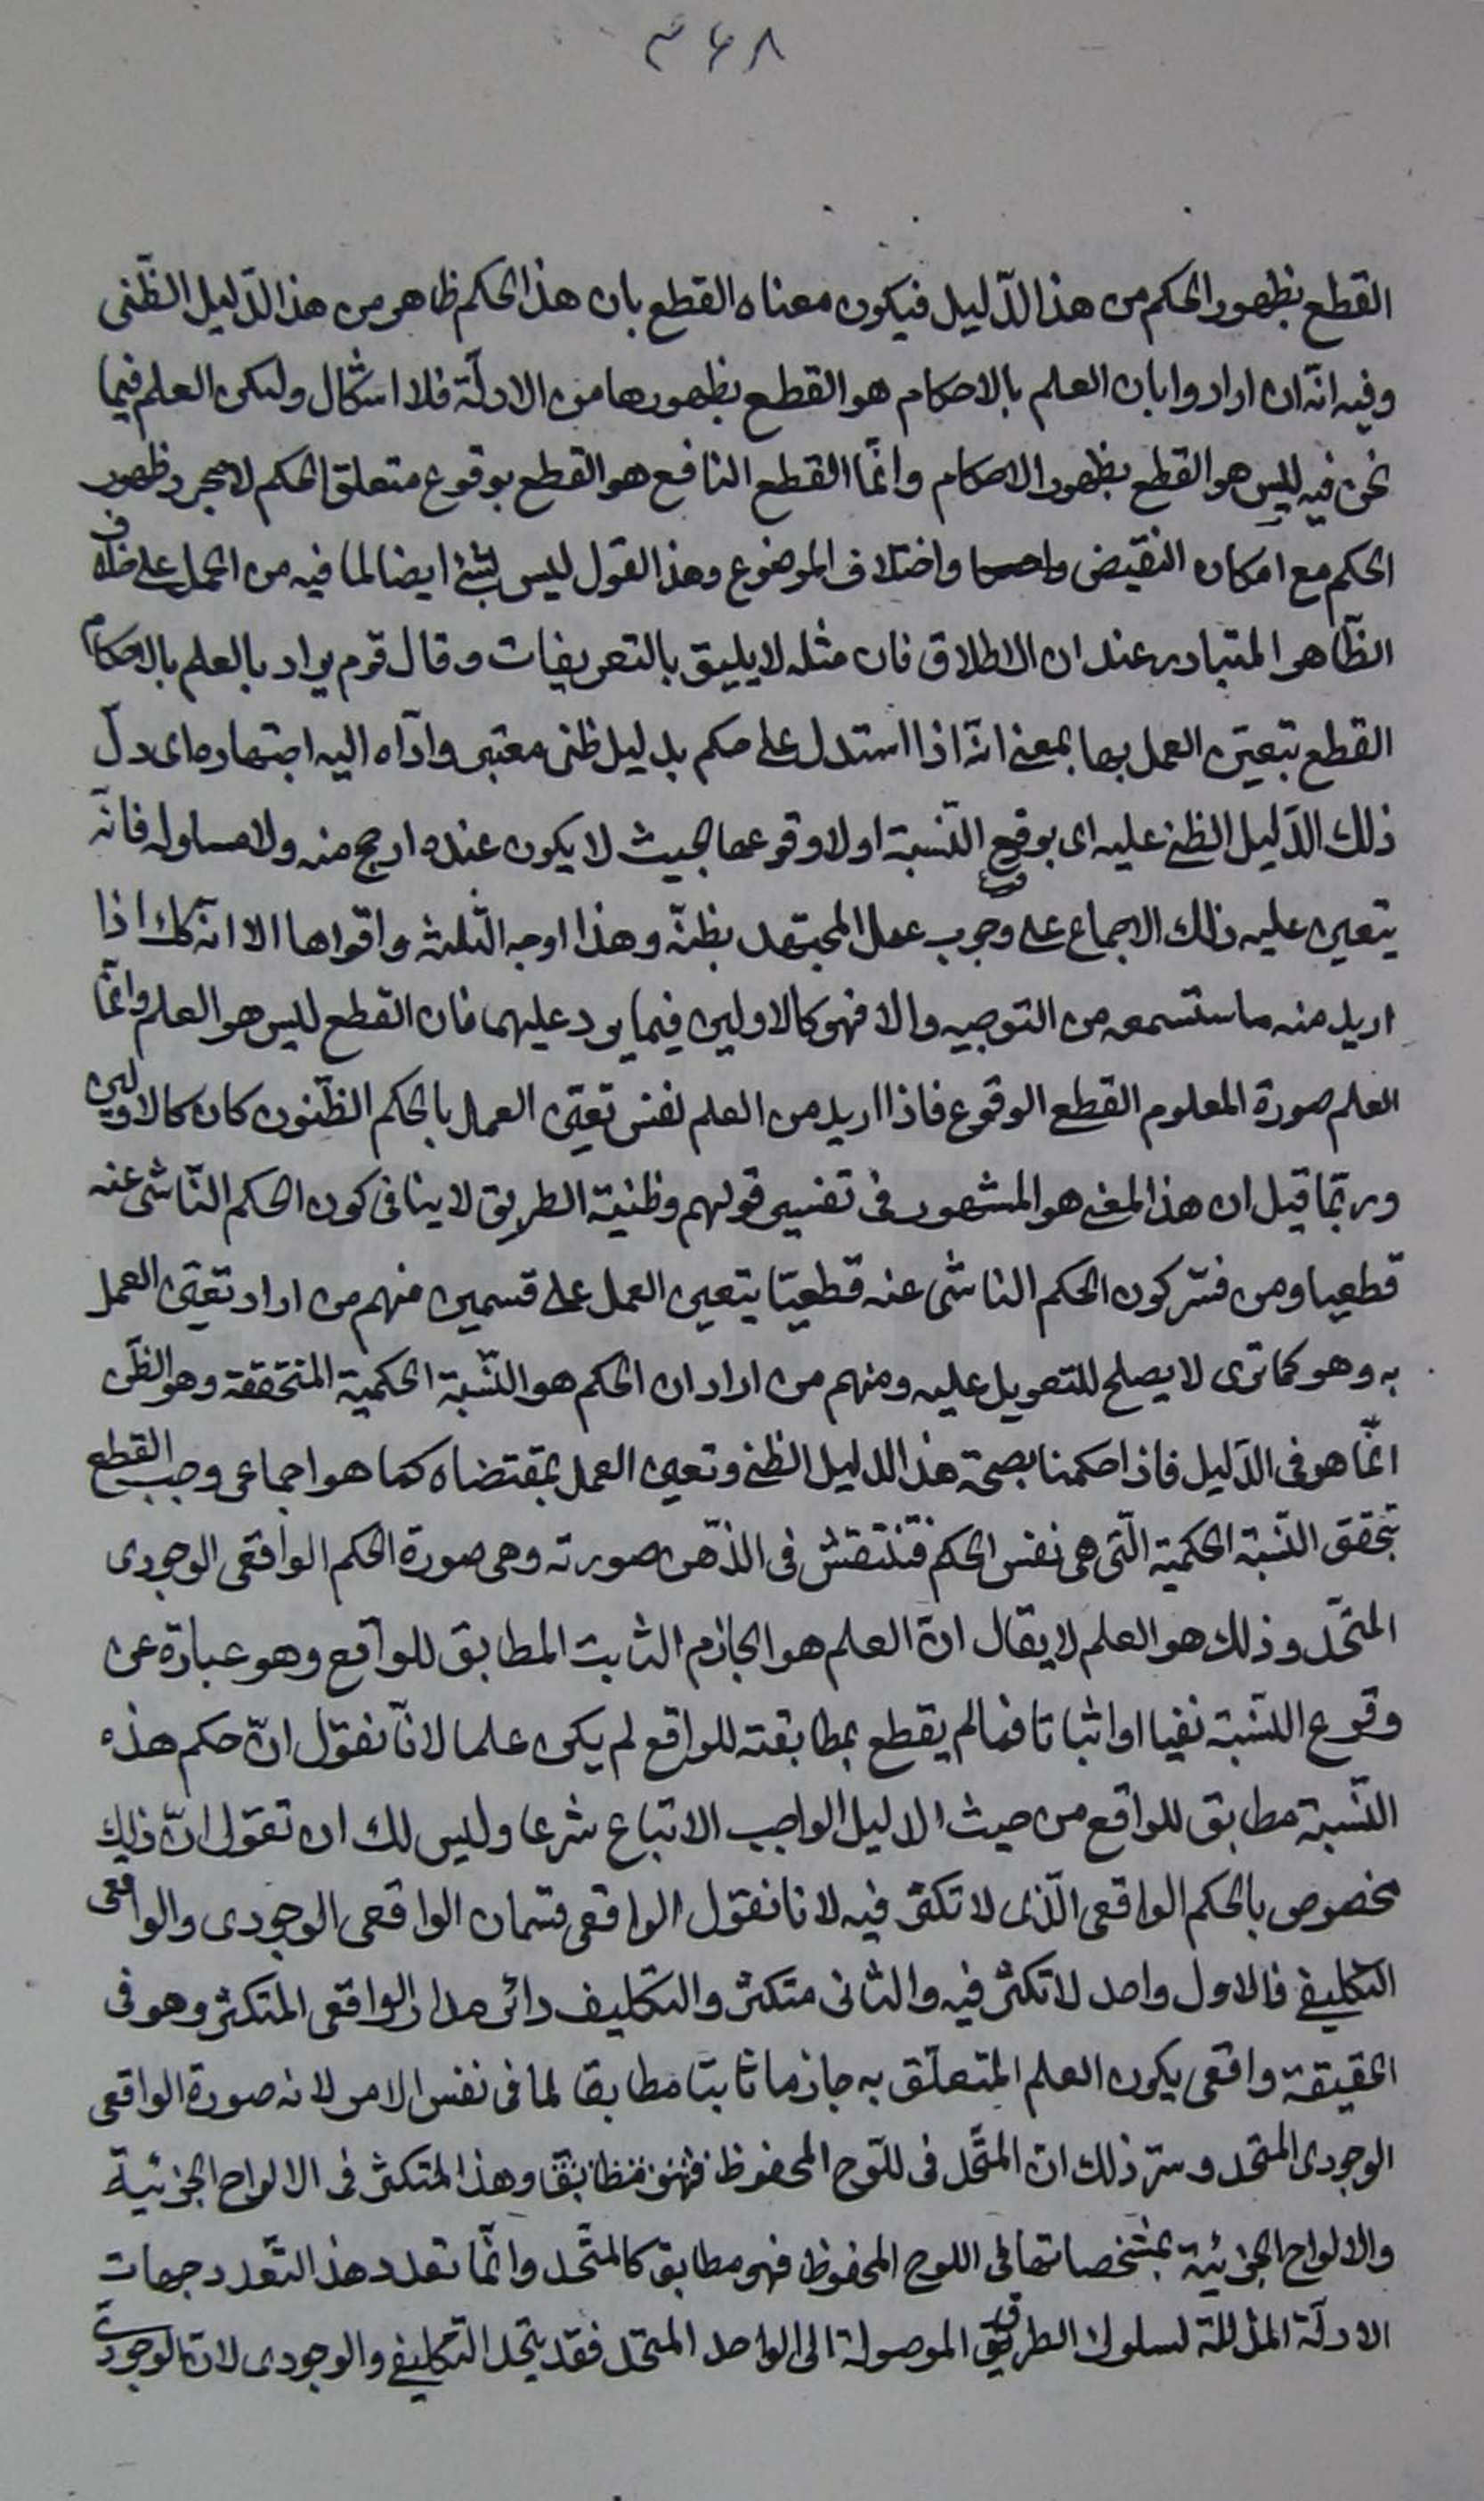 ۳۶۸
القطع بظهور الحكم من هذا الدّليل فيكون معناه القطع بان هذا الحكم ظاهر من هذا الدّليل الظّنى
وفيه انّه ان ارادوا بان العلم بالاحكام هو القطع بظهورها من الادلّة فلا اشكال ولكن العلم فيما
نحن فيه ليس هو القطع بظهور الاحكام وانّما القطع النافع هو القطع بوقوع متعلق الحكم لا مجرد ظهور
الحكم مع امكان النقيض واختلاف الموضوع وهذا القول ليس بشئ ايضا لما فيه من الحمل على خلاف
الظّاهر المتبادر عند ان الاطلاق فان مثله لا يليق بالتعريفات وقال قوم يراد بالعلم بالاحكام
القطع بتعيّن العمل بها بمعنى انّه اذا استدل على حكم بدليل ظنى معتبر وادّاه اليه اجتهاده اى دلّ
ذلك الدّليل الظنى عليه اى بوقوع النّسبة او لا وقوعها بحيث لا يكون عنده ارجح منه ولا مساو له فانّه
يتعين عليه ذلك الاجماع على وجوب عمل المجتهد بظنّه وهذا اوجه الثلثة واقواها الا انّه كك اذا
اريد منه ما ستسمعه من التوجيه والا فهو كالاولين فيما يرد عليهما فان القطع ليس هو العلم وانّما
العلم صورة المعلوم القطع الوقوع فاذا اريد من العلم نفس تعيّن العمل بالحكم الظّنون كان كالاولين
وربّما قيل ان هذا المعنى هو المشهور فى تفسير قولهم وظنية الطريق لا ينافى كون الحكم النّاشى عنه
قطعيا ومن فسّر كون الحكم الناشى عنه قطعيّا بتعين العمل على قسمين منهم من اراد تعيّن العمل
به وهو كما ترى لا يصلح للتعويل عليه ومنهم من اراد ان الحكم هو النّسبة الحكمية المتحققة وهو الظّن
انّما هو فى الدّليل فاذا حكمنا بصحة هذا الدليل الظنى وتعين العمل بمقتضاه كما هو اجماعى وجب القطع
بتحقق النّسبة الحكمية الّتى هى نفس الحكم فتنتقش فى الذّهن صورته وهى صورة الحكم الواقعى الوجودى
المتّحد وذلك هو العلم لا يقال انّ العلم هو الجازم الثابت المطابق للواقع وهو عبارة عن
وقوع النّسبة نفيا او اثباتا فما لم يقطع بمطابقته للواقع لم يكن علما لانّا نقول انّ حكم هذه
النّسبة مطابق للواقع من حيث الدليل الواجب الاتباع شرعا وليس لك ان تقول انّ ذلك
مخصوص بالحكم الواقعى الّذى لا تكثّر فيه لانا نقول الواقعى قسمان الواقعى الوجودى والواقعى
التكليفى فالاول واحد لا تكثر فيه والثانى متكثر والتكليف دائر مدار الواقعى المتكثر وهو فى
الحقيقة واقعى يكون العلم المتعلّق به جازما ثابتا مطابقا لما فى نفس الامر لانه صورة الواقعى
الوجودى المتحد وسرّ ذلك انّ المتّحد فى اللّوح المحفوظ فهو مطابق وهذا المتكثر فى الالواح الجزئية
والالواح الجزئية بمشخصاتها فى اللوح المحفوظ فهو مطابق كالمتّحد وانّما تعدد هذا التّعدد جهات
الادلّة المذللة لسلوك الطريق الموصولة الى الواحد المتحد فقد يتحد التكليفى والوجودى لانّ الوجودى